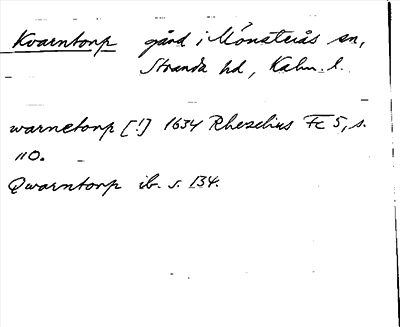 Kvarntorp gård i Mönsterås sn,
Stranda hd, Kalm. l.
warnetorp [!] 1634 Rhezelius Fc 5, s.
110.
Qwarntorp ib. s. 134.